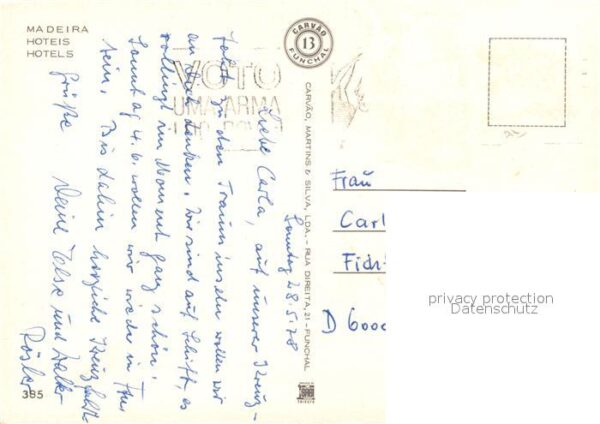 MADEIRA
HOTEIS
HOTELS
CARVÃO
13
FUNCHAL
VOTO
UMA ARMA
DO POVO
CARVÃO, MARTINS & SILVA, LDA. - RUA DIREITA, 21 - FUNCHAL
Sonntag 28.5.78
Liebe Carla, auf unserer Kreuz-
fahrt zu den Trauminseln wollen wir
an Dich denken. Wir sind auf Schiff, es
rollt im Moment ganz schön.
Sonntag 4.6. wollen wir wieder in
sein. Bis dahin herzliche Kreuzfahrt-
grüße Deine Telse und Walter
Rösler
Frau
Carl
Fich
D 6000
385
privacy protection
Datenschutz